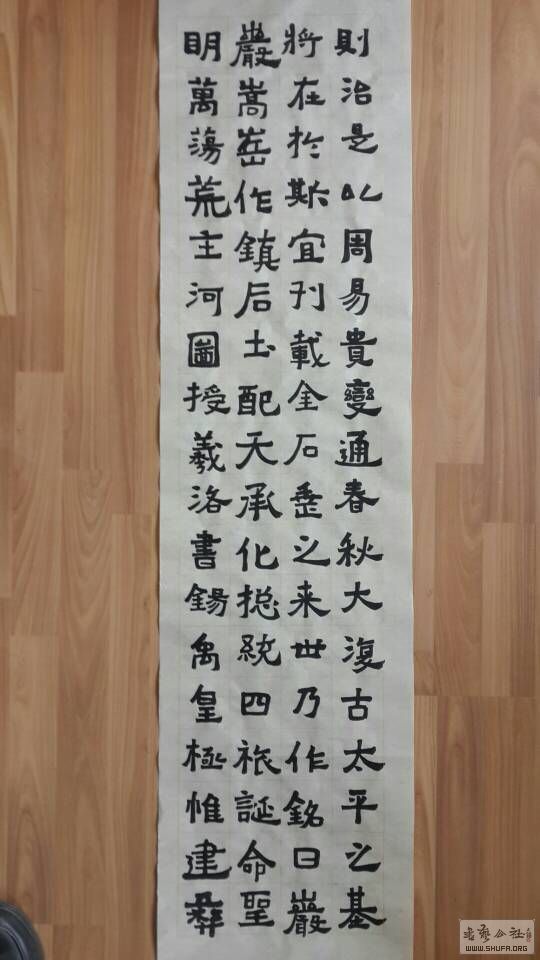 則治是以周易貴變通春秋大復古太平之基
將在於斯宜刊載金石垂之来世乃作銘曰巖
巖嵩岳作鎮后土配天承化捴統四旅誕命聖
眀萬蕩荒主河圖授羲洛書錫禹皇極惟建彝
书艺公社
WWW.SHUFA.ORG